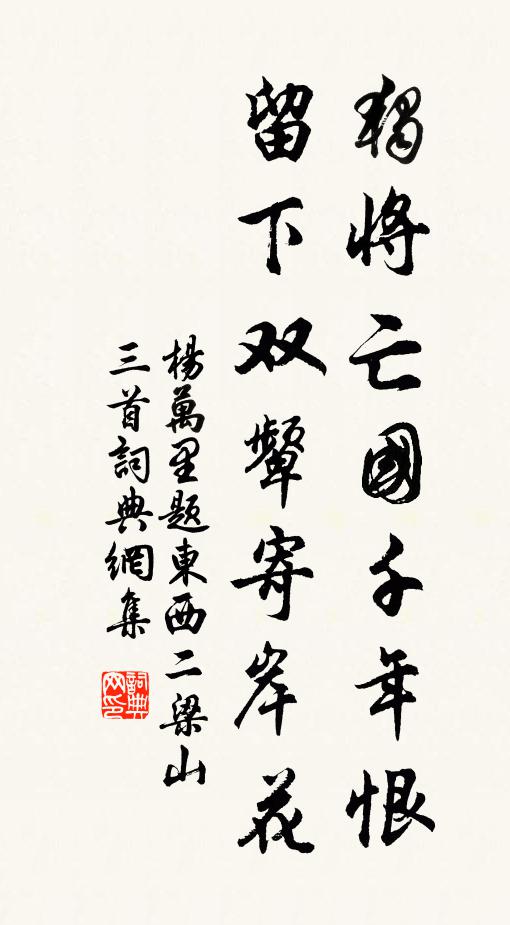 獨將亡國千年恨
留下双顰寄岸花
楊萬里題東西二梁山
三首詞典網集
詞典網印